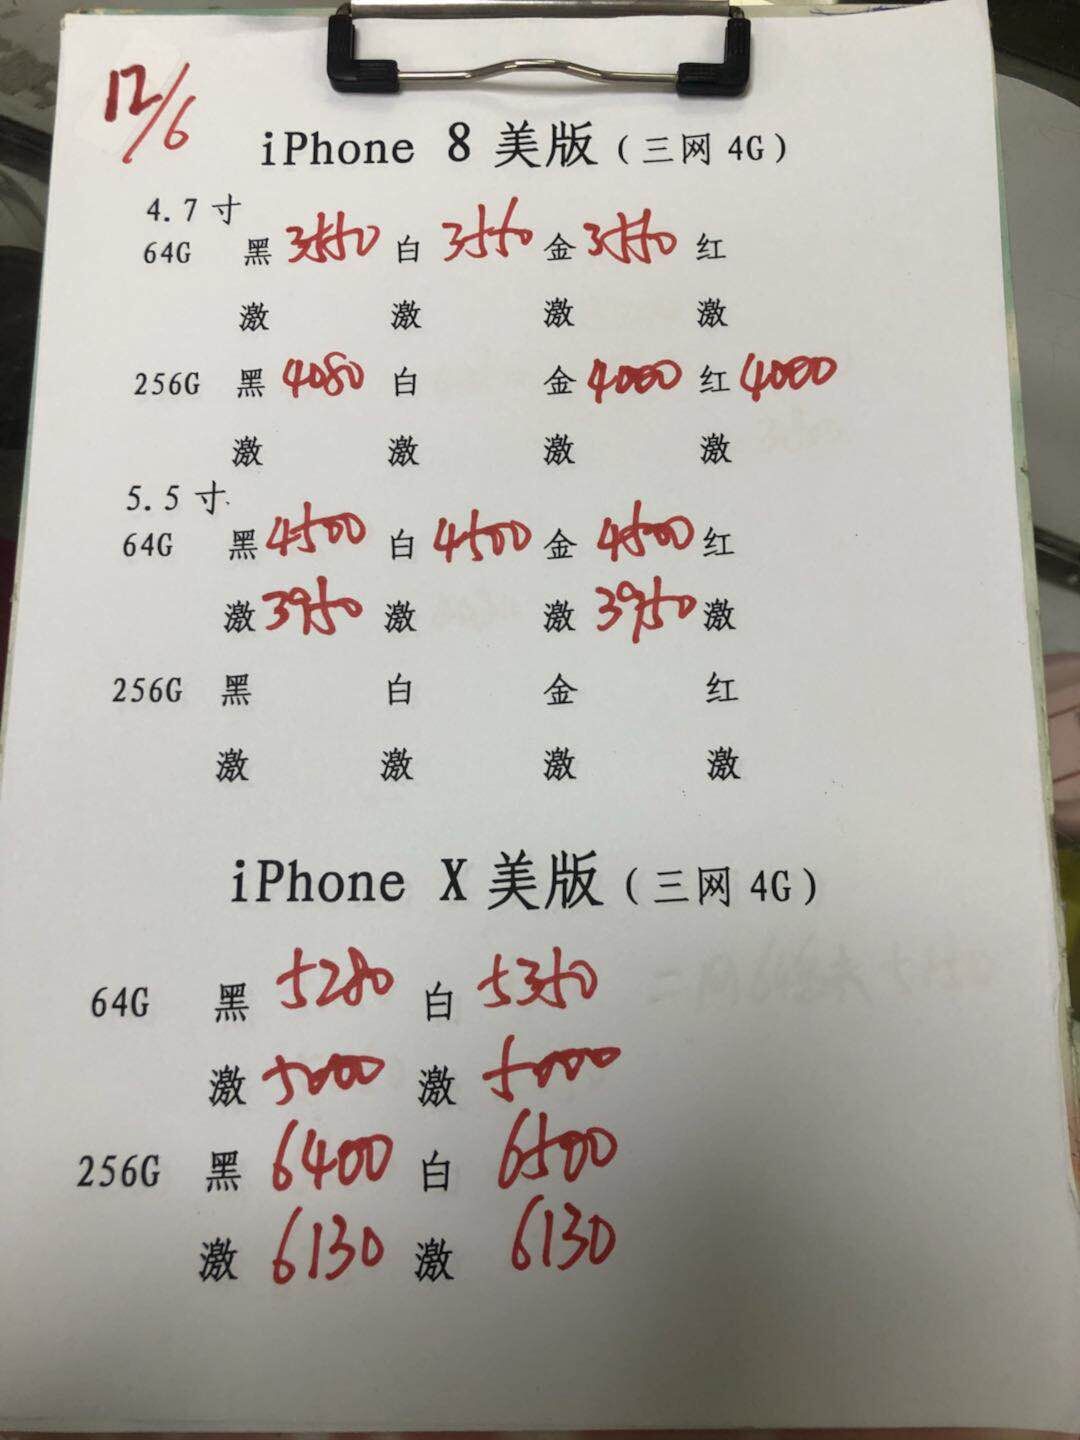 12/6
iPhone 8 美版（三网 4G）
4.7 寸
64G 黑 3550 白 3550 金 3550 红
激 激 激 激
256G 黑 4080 白 金 4000 红 4000
激 激 激 激
5.5 寸
64G 黑 4500 白 4500 金 4500 红
激 3950 激 激 3950 激
256G 黑 白 金 红
激 激 激 激
iPhone X 美版（三网 4G）
64G 黑 5280 白 5350
激 5000 激 5000
256G 黑 6400 白 6500
激 6130 激 6130